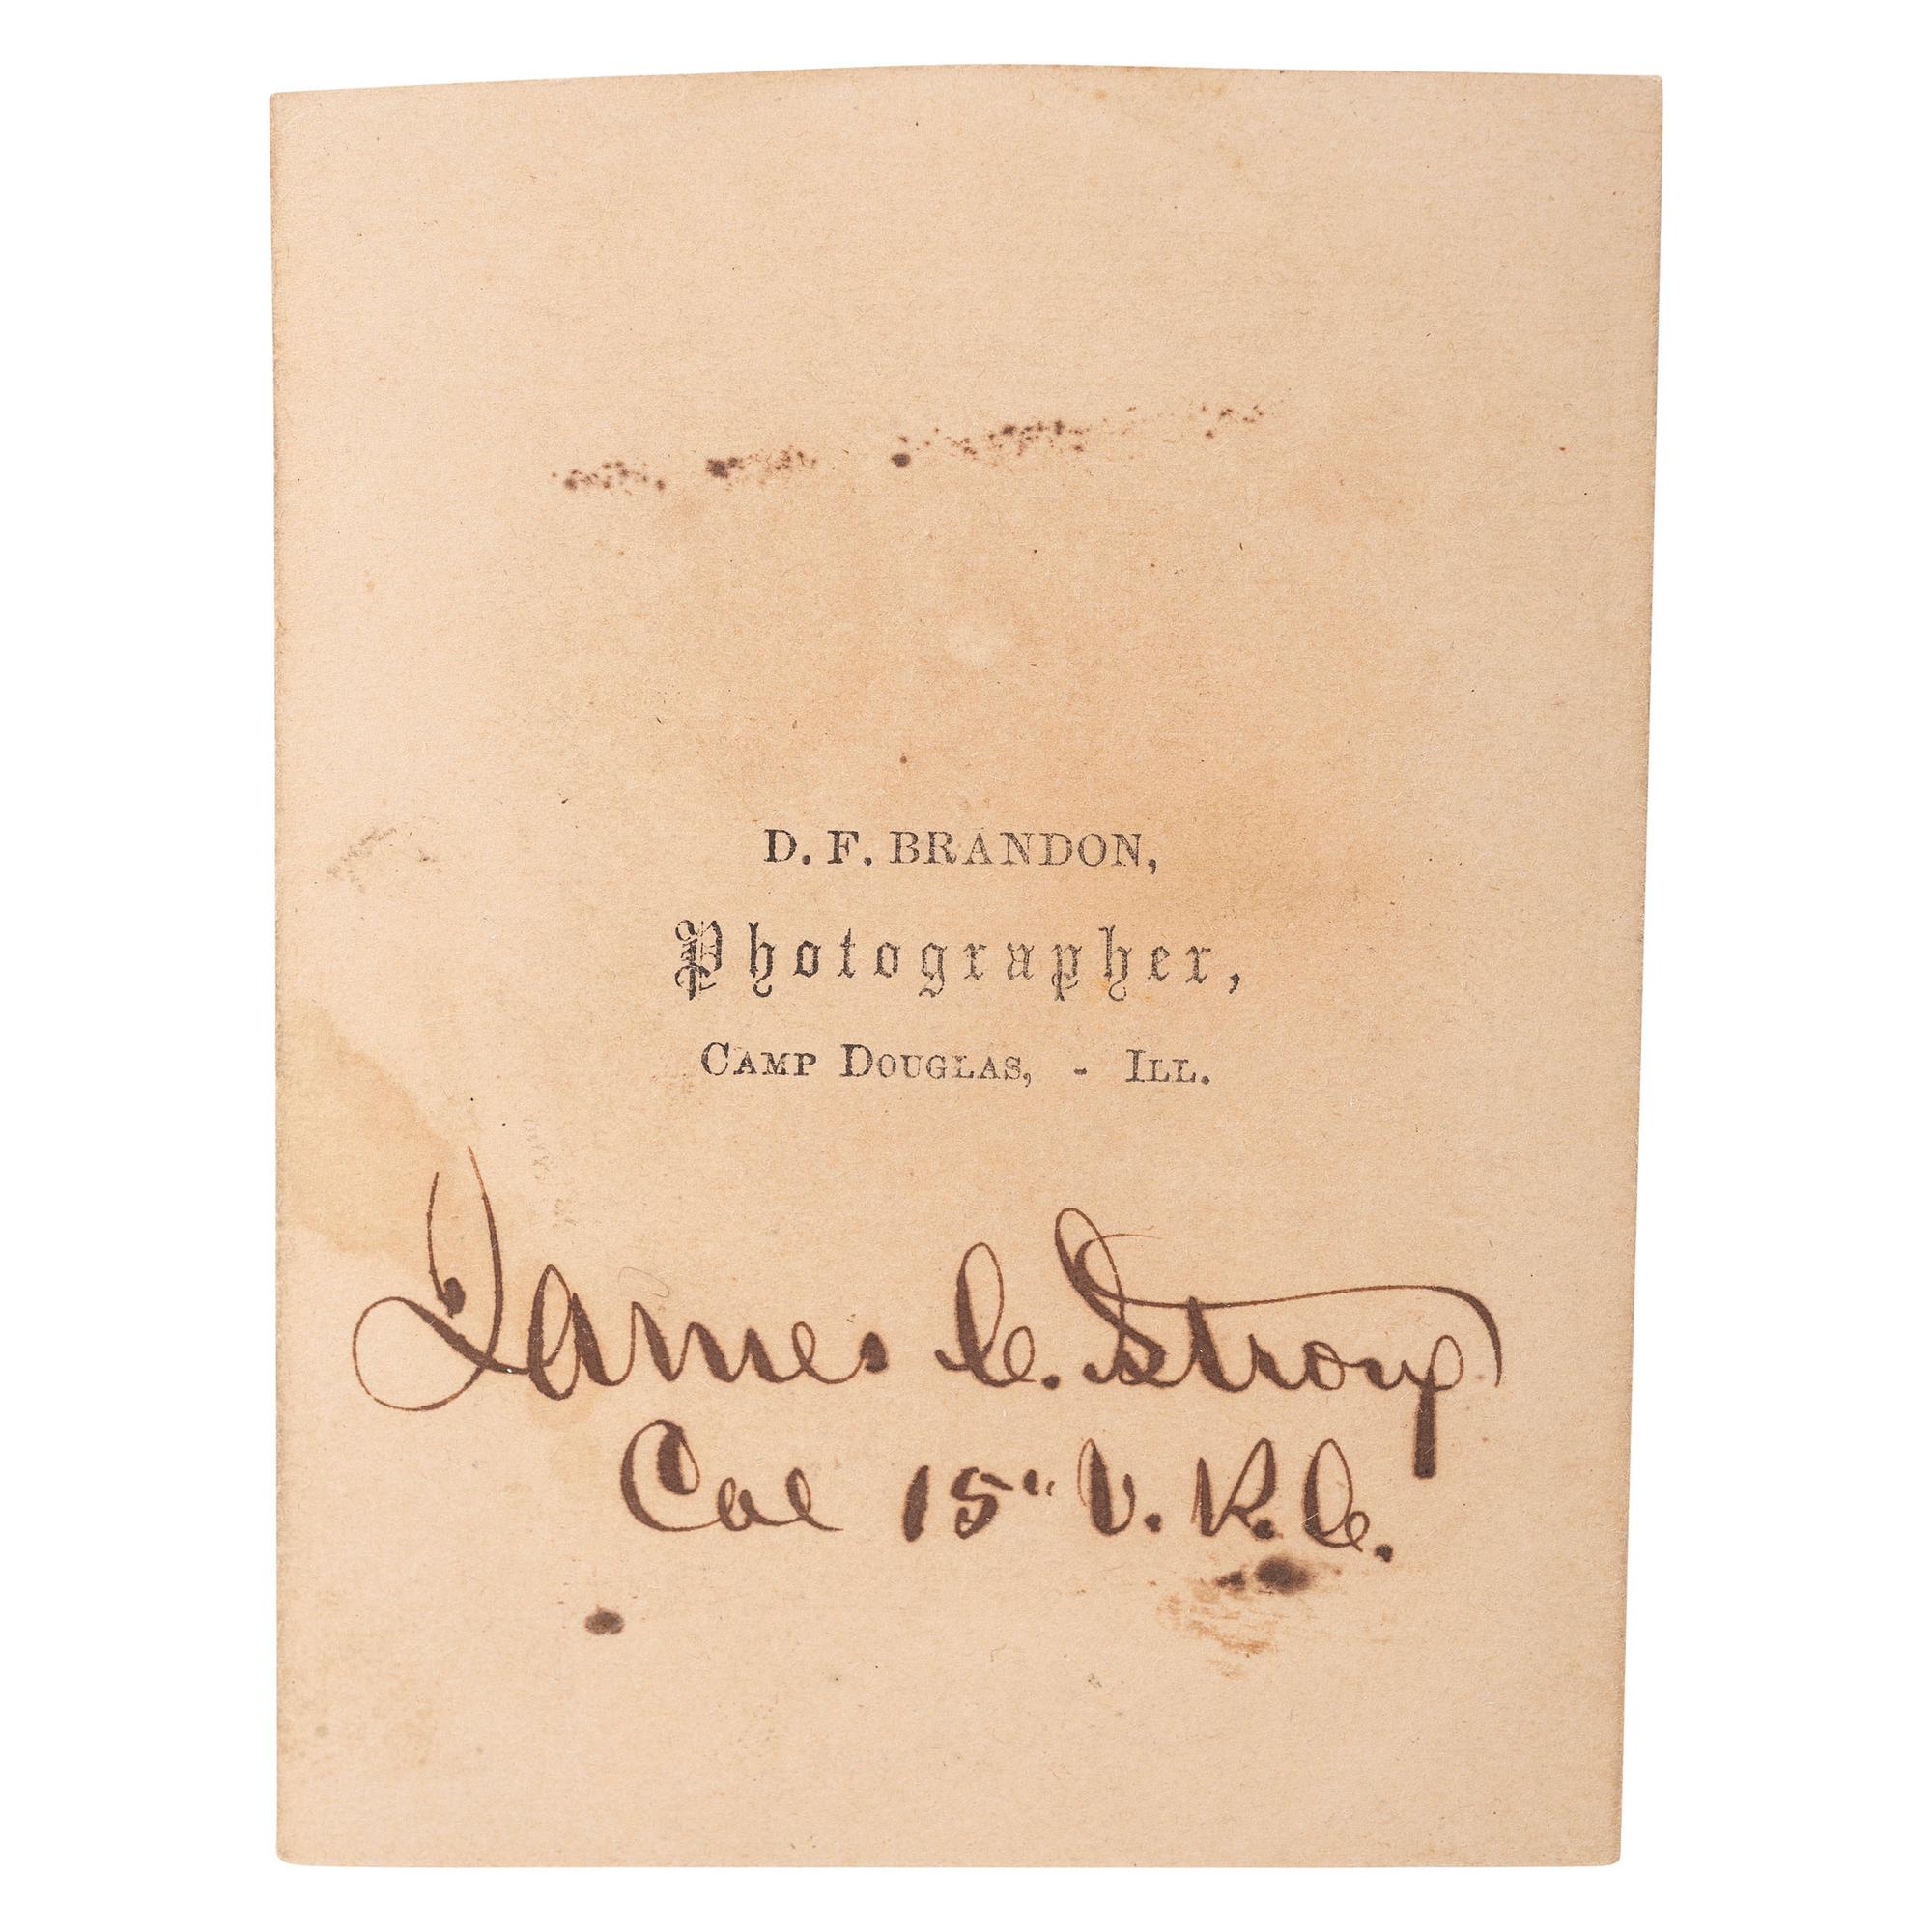 D. F. BRANDON,
Photographer,
CAMP DOUGLAS, - ILL.
James C. Strong
Col 15" V. R. C.